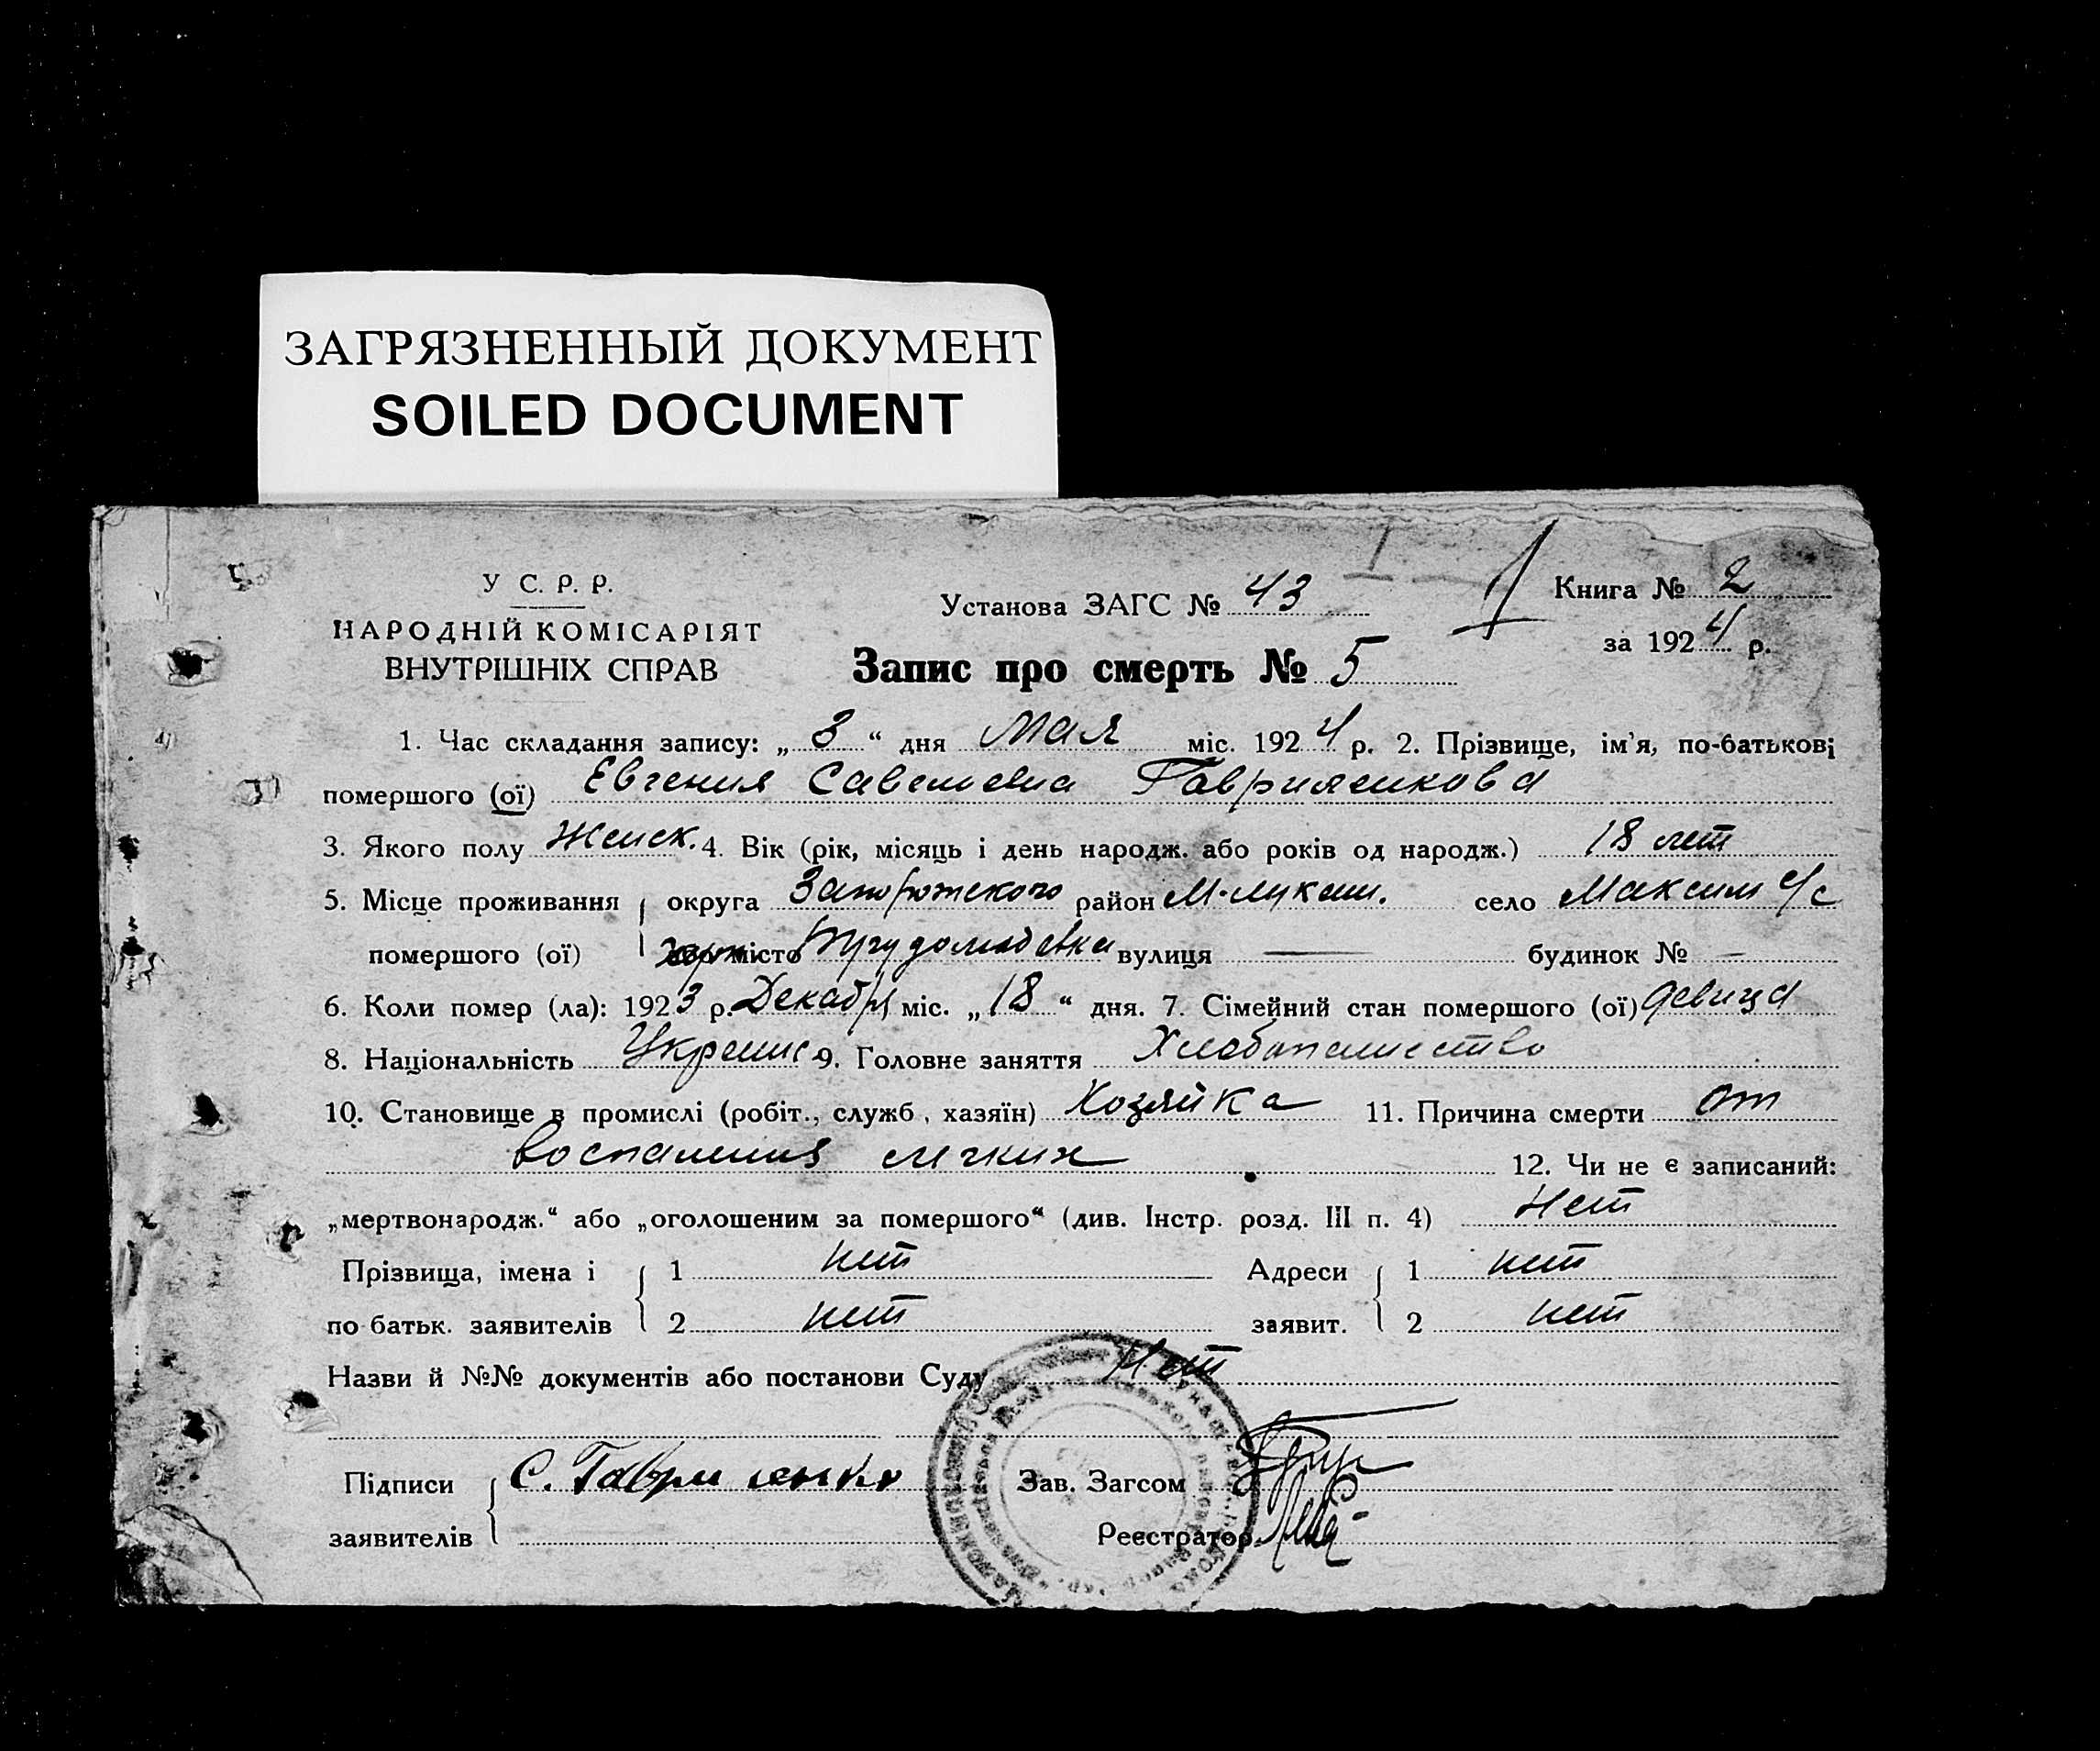 ЗАГРЯЗНЕННЫЙ ДОКУМЕНТ
SOILED DOCUMENT
У С. Р. Р.
НАРОДНІЙ КОМІСАРІЯТ
ВНУТРІШНІХ СПРАВ
Установа ЗАГС № 43
Книга № 2
за 1924 р.
Запис про смерть № 5
1. Час складання запису: „ 3 “ дня Мая міс. 1924 р. 2. Прізвище, ім'я, по-батькові
помершого (ої) Евгения Савельевна Гавриленкова
3. Якого полу Женск. 4. Вік (рік, місяць і день народж. або років од народж.) 18 лет
5. Місце проживання округа Запорожского район М-Лукаш. село Максим с/с
помершого (ої) місто Трудолюбовка вулиця — будинок № —
6. Коли помер (ла): 1923 р. Декабря міс. „ 18 “ дня. 7. Сімейний стан помершого (ої) девица
8. Національність Украинс. 9. Головне заняття Хлебопашество
10. Становище в промислі (робіт., служб, хазяїн) Хозяйка 11. Причина смерти от
воспаления легких 12. Чи не є записаний:
„мертвонародж.“ або „оголошеним за помершого“ (див. Інстр. розд. III п. 4) Нет
Прізвища, імена і 1 нет Адреси 1 нет
по батьк. заявителів 2 нет заявит. 2 нет
Назви й №№ документів або постанови Суду Нет
Підписи С. Гавриленко Зав. Загсом
заявителів Реєстратор